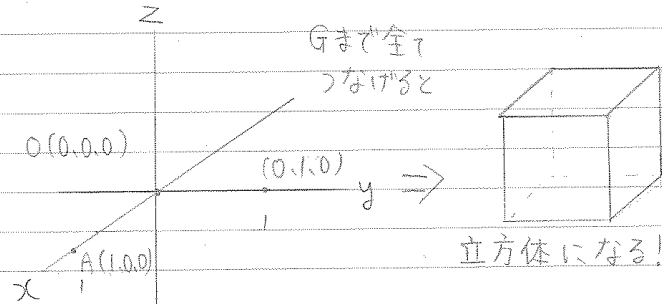 z
Gまで全て
つなげると
O(0.0.0)
(0.1.0)
y
⇒
1
A(1.0.0)
1
x
立方体になる!